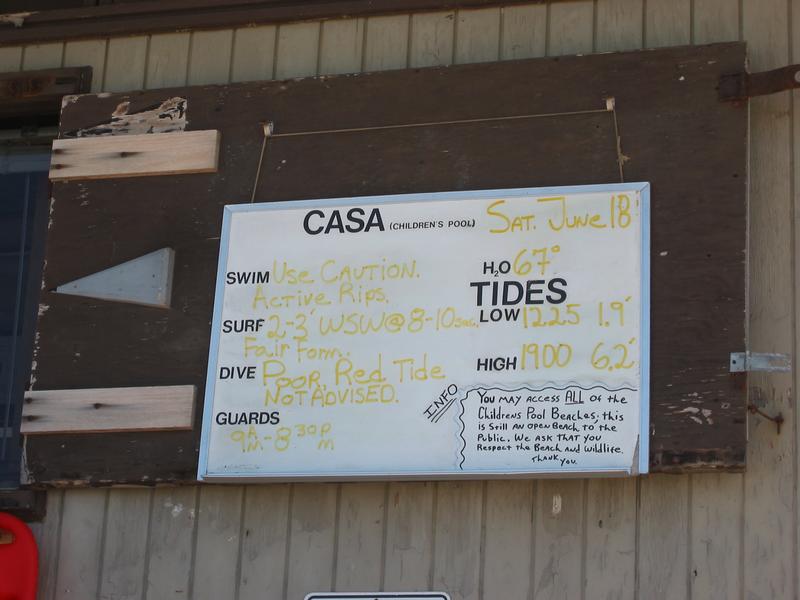 CASA (CHILDREN'S POOL) SAT. JUNE 18
SWIM USE CAUTION.
ACTIVE RIPS.
SURF 2-3' WSW@8-10sec.
FAIR FORM.
DIVE POOR, RED TIDE
NOT ADVISED.
GUARDS
9AM-8:30PM
H2O 67°
TIDES
LOW 1225 1.9'
HIGH 1900 6.2'
INFO
YOU MAY ACCESS ALL OF the
Childrens Pool Beaches; this
is Still AN OPEN BEACH TO the
Public. WE ASK THAT YOU
RESPECT the BEACH AND WILDLIFE.
THANK YOU.